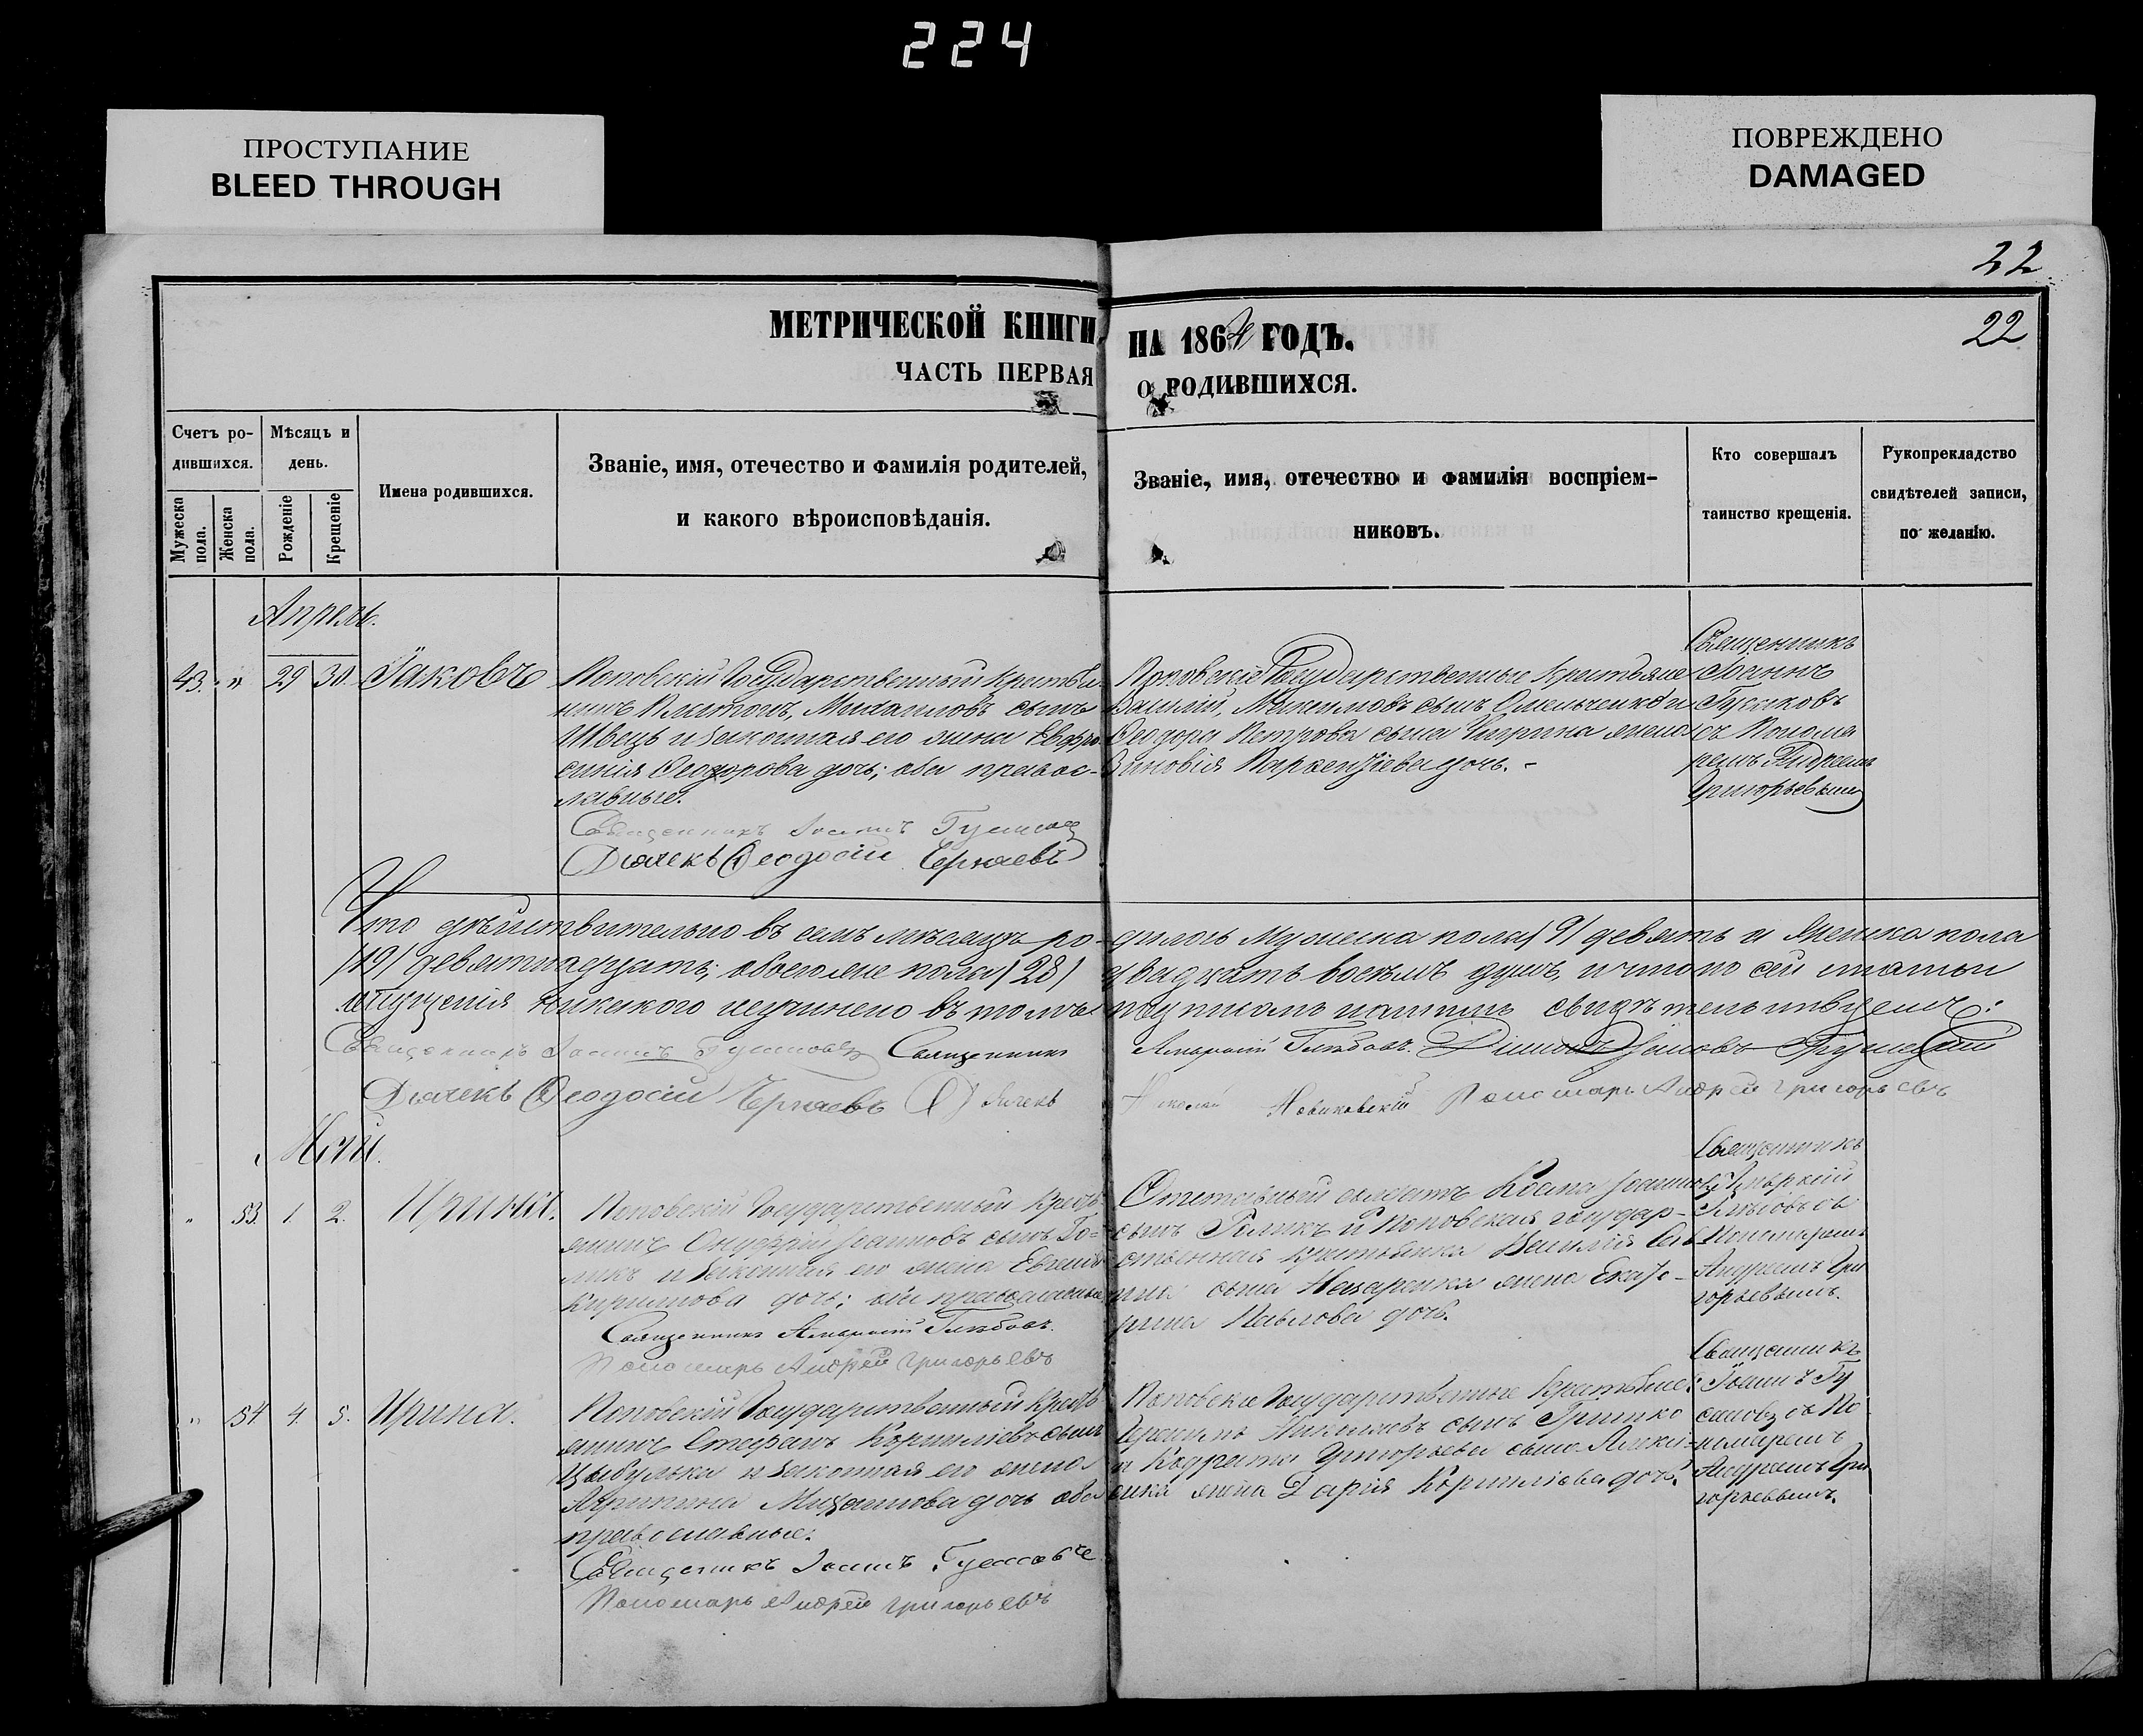 224
ПРОСТУПАНИЕ
BLEED THROUGH
ПОВРЕЖДЕНО
DAMAGED
22
22
МЕТРИЧЕСКОЙ КНИГИ НА 1864 ГОДЪ.
ЧАСТЬ ПЕРВАЯ О РОДИВШИХСЯ.
Счетъ ро-
дившихся.
Мужеска пола.
Женска пола.
Мѣсяцъ и
день.
Рожденіе
Крещеніе
Имена родившихся.
Званіе, имя, отечество и фамилія родителей,
и какого вѣроисповѣданія.
Званіе, имя, отечество и фамилія воспріем-
никовъ.
Кто совершалъ
таинство крещенія.
Рукопрекладство
свидѣтелей записи,
по желанію.
Апрель.
43. " 29 30. Іаковъ
Поповскій Государственный Крестья-
нинъ Платонъ, Михаиловъ сынъ
Швець и законная его жена Евфро-
синія Ѳеодорова дочь; оба правос-
лавные.
Священникъ Іоаннъ
Дьячекъ Ѳеодосій Черняевъ
Поповскіе Государственные Крестьяне
Василій, Максимовъ сынъ Омельченко и
Ѳеодора Петрова сына жена
Зиновія дочь. -
Священникъ
Іоаннъ
съ Понома
ремъ Андреемъ
Григорьевымъ
Что дѣйствительно въ семъ мѣсяцѣ ро-
дилось Мужеска пола /9/ девять и Женска пола
/19/ девятнадцать; обоего же пола /28/
двадцать восемъ душъ, и что по сей статьи
упущенія никакого неучинено въ томъ
подписомъ нашимъ свидѣтельствуемъ:
Священникъ Іоаннъ Священникъ
Дьячекъ Ѳеодосій Черняевъ Дьячекъ
Новиковскій Пономарь Андрей Григорьевъ
Май.
" 53. 1. 2. Ирина.
Поповскій Государственный Кресть-
янинъ Онуфрій Іоанновъ сынъ Го-
ликъ и законная его жена Евгенія
Кирилова дочь; оба православные
Священникъ Глѣбовъ.
Пономарь Андрей Григорьевъ
Отставный солдатъ Косма
сынъ Голикъ и Поповская государ-
ственная крестьянка Василія
сына Назаренка жена Екате-
рина Павлова дочь.
Священникъ
Глѣбовъ съ
Пономаремъ
Андреемъ Гри
горьевымъ.
" 54 4. 5. Ирина.
Поповскій Государственный Кресть-
янинъ Стефанъ Корниліевъ сынъ
Цыбулька и законная его жена
Агрипина Михаилова дочь оба
православные.
Священникъ Іоаннъ
Пономарь Андрей Григорьевъ
Поповскіе Государственные Крестьяне:
сынъ Гришко
и Кодрата Григорьева сына
жена Дарія Корниліева дочь.
Священникъ
Іоаннъ
съ По
номаремъ
Андреемъ Гри
горьевымъ.